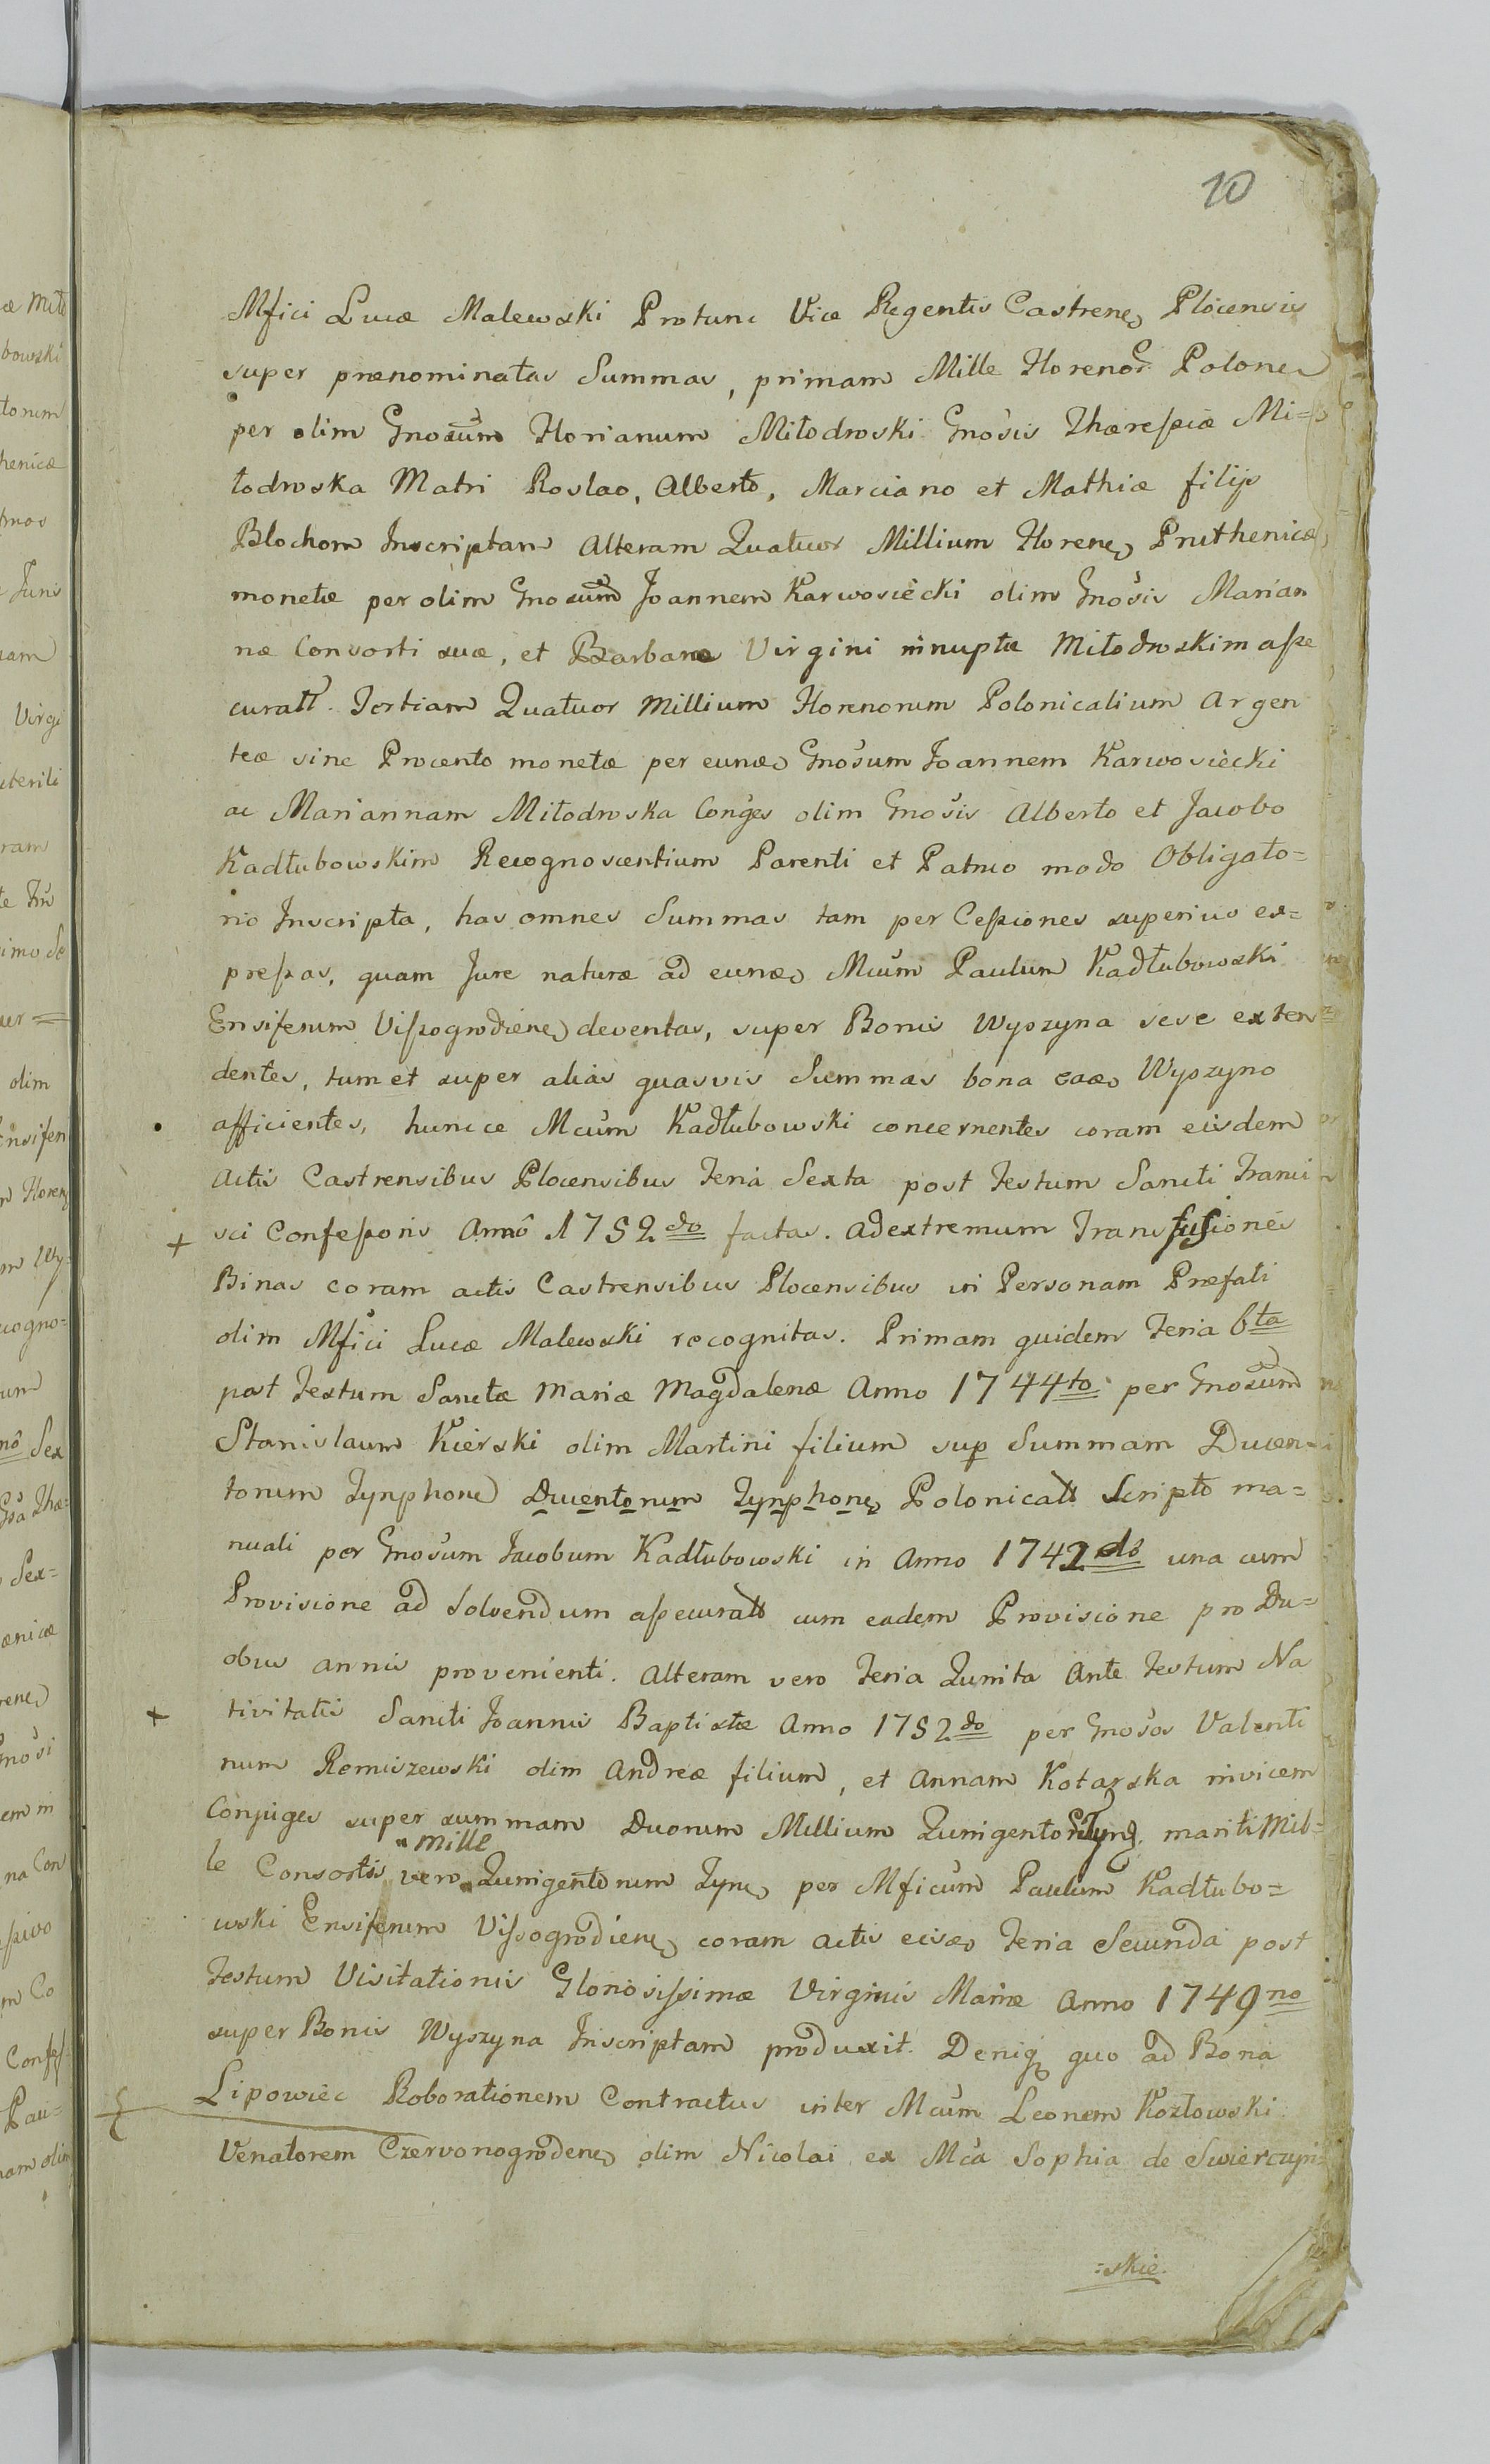 10
Mfici Lucæ Malewski Protunc Vice Regentis Castrens Plocensis
super prænominatas Summas, primam Mille Florenor Polone
per olim Gnosum Florianum Miłodroski Gnosis Theressiæ Mi=
łodroska Matri Roslao, Alberto, Marciano et Mathiæ filijs
Blochom Inscriptam Alteram Quatuor Millium Florene Pruthenicæ
monetæ per olim Gnosum Joannem Karwosiecki olim Gnosis Marian
næ Consorti suæ, et Barbaræ Virgini innuptæ Miłodroskim asse
curatt. Tertiam Quatuor Millium Florenorum Polonicalium Argen
teæ sine Procento monetæ per eund Gnosum Joannem Karwosiecki
ac Mariannam Miłodroska Conges olim Gnosis Alberto et Jacobo
Kadłubowskim Recognoscentium Parenti et Patruo modo Obligato=
rio Inscripta, has omnes Summas tam per Cessiones superius ex=
pressas, quam Jure naturæ ad eund Mcum Paulum Kadłubowski
Ensiferum Vissogrodiens deventas, super Bonis Wyszyna sese exten
dentes, tum et super alias quasvis Summas bona ead Wyszyno
afficientes, huncce Mcum Kadłubowski concernentes coram eisdem
Actis Castrensibus Plocensibus Feria Sexta post Festum Sancti Franci
sci Confessoris Anno 1752do factas. Ad extremum Transfusiones
Binas coram actis Castrensibus Plocensibus in Personam Præfati
olim Mfici Lucæ Malewski recognitas. Primam quidem Feria 6ta
post Festum Sanctæ Mariæ Magdalenæ Anno 1744to per Gnosum
Stanislaum Kierski olim Martini filium sup Summam Ducen=
torum Tynphone Ducentorum Tynphone Polonicall Scripto ma=
nuali per Gnosum Jacobum Kadłubowski in Anno 1742do una cum
Provisione ad Solvendum assecuratt cum eadem Provisione pro Du=
obus annis provenienti. Alteram vero Feria Quinta Ante Festum Na
tivitatis Sancti Joannis Baptistæ Anno 1752do per Gnosos Valenti
num Romiszewski olim Andreæ filium, et Annam Kotarska invicem
Conjuges super summam Duorum Millium Quingentor Tyne. mariti Mil=
mille
le Consortis vero Quingentorum Tyne per Mficum Paulum Kadłubo=
wski Ensiferum Vissogrodiens coram actis eisd Feria Secunda post
Festum Visitationis Gloriosissimæ Virginis Mariæ Anno 1749no
super Bonis Wyszyna Inscriptam produxit. Deniq quo ad Bona
Lipowiec Roborationem Contractus inter Mcum Leonem Kozłowski
Venatorem Czervonogrodens olim Nicolai ex Mca Sophia de Swierczyn
=skie.